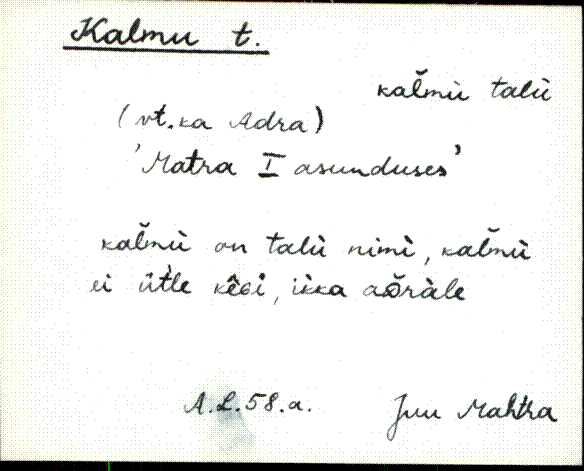 Kalmu t.
kal̆mù talù
(vt. ka Adra)
'Matra I asunduses'
kal̆mù on talù nimì, kal̆mù
ei üt̀le kêɢi, ìkka
A.L.58.a. Juu Mahtra